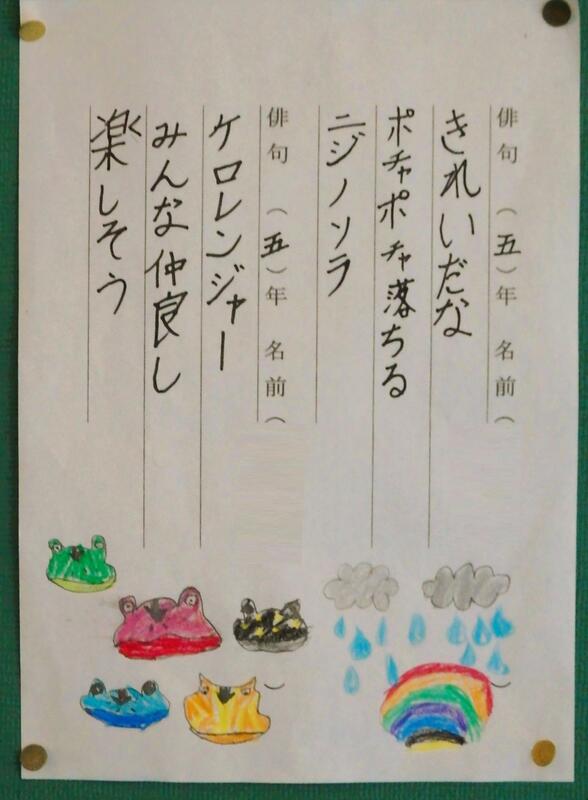 俳句（五）年 名前（
きれいだな
ポチャポチャ落ちる
ニジノソラ
俳句（五）年 名前（
ケロレンジャー
みんな仲良し
楽しそう